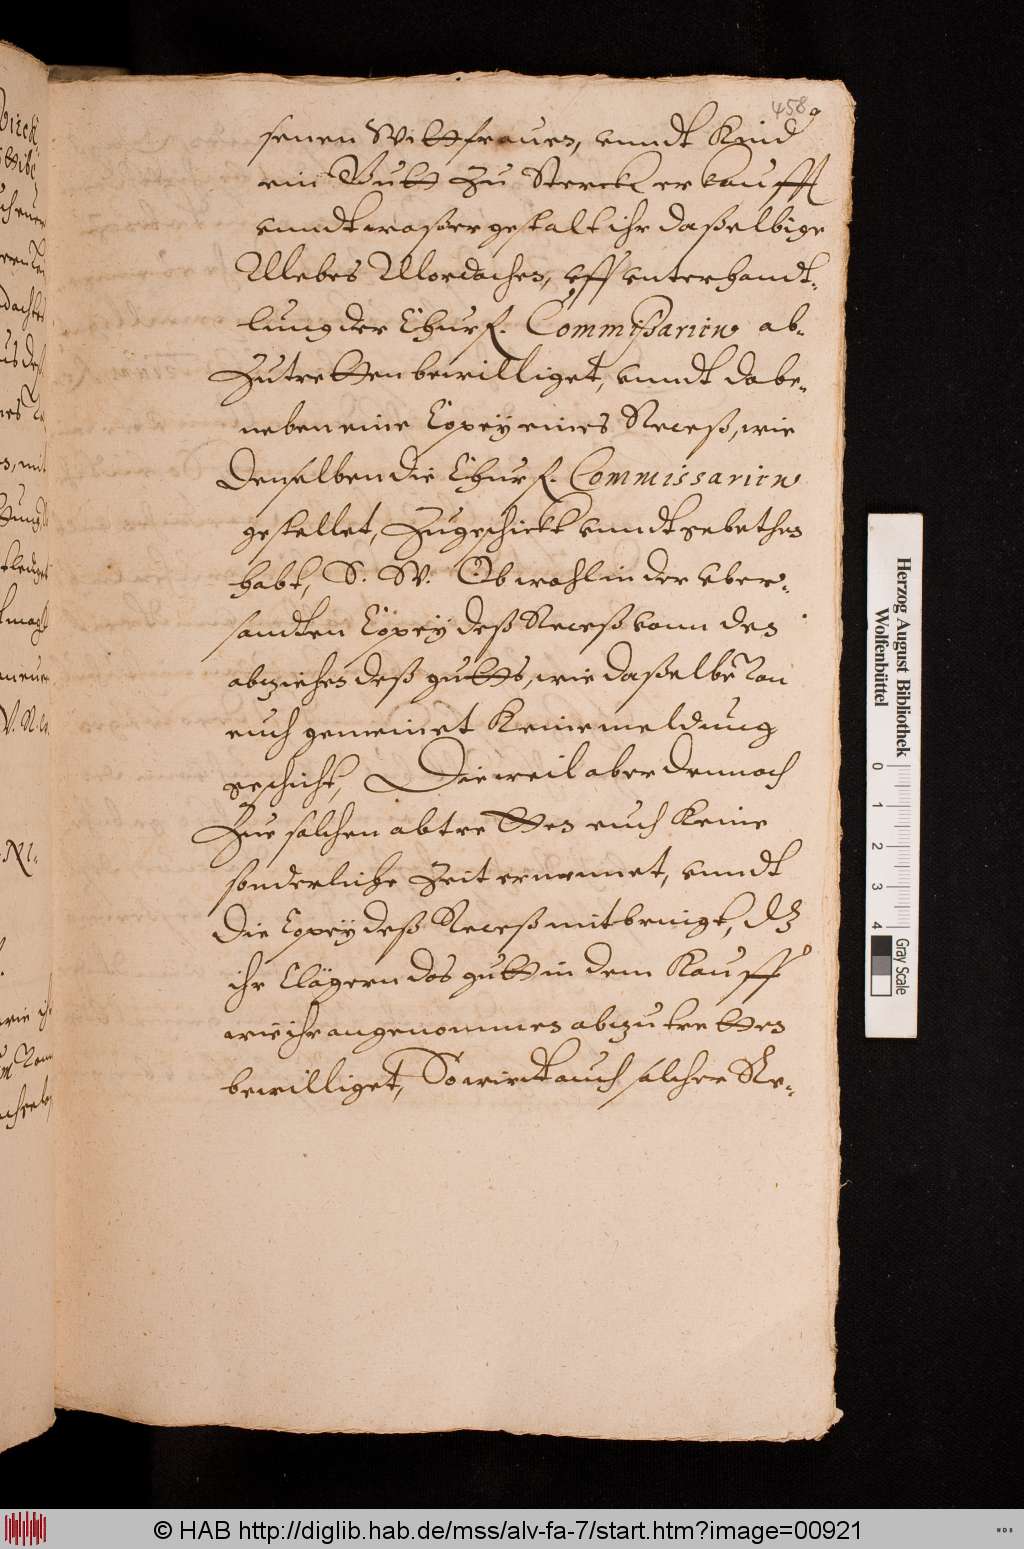 458 a
senen Wittfrauen, vnndt Kind
ein Gutt zu Sterckl erkaufft
vnndt waßer gestalt ihr daßelbige
vff vnterhandt-
lung der Churf. Commissarien ab-
zutretten bewilliget, vnndt dabe-
neben eine Copey eines Receß, wie
denselben die Churf. Commissarien
gestellet, zugeschickt vnndt gebethen
habt, Ob wohl in der vber-
sandten Copey deß Receß vonn den
abziehen deß gutts, wie daßelbe von
euch gemeinet Keine meldung
geschicht, Dieweil aber dennoch
Zue solchen abtretten euch Keine
sonderliche Zeit ernennet, vnndt
die Copey deß Receß mitbringt, dz
ihr Clägern das gutt in dem Kauff
wie ihr angenommen abzutretten
bewilliget, So wirdt auch solcher Re-
Herzog August Bibliothek
Wolfenbüttel
0 1 2 3 4
Gray Scale
© HAB http://diglib.hab.de/mss/alv-fa-7/start.htm?image=00921